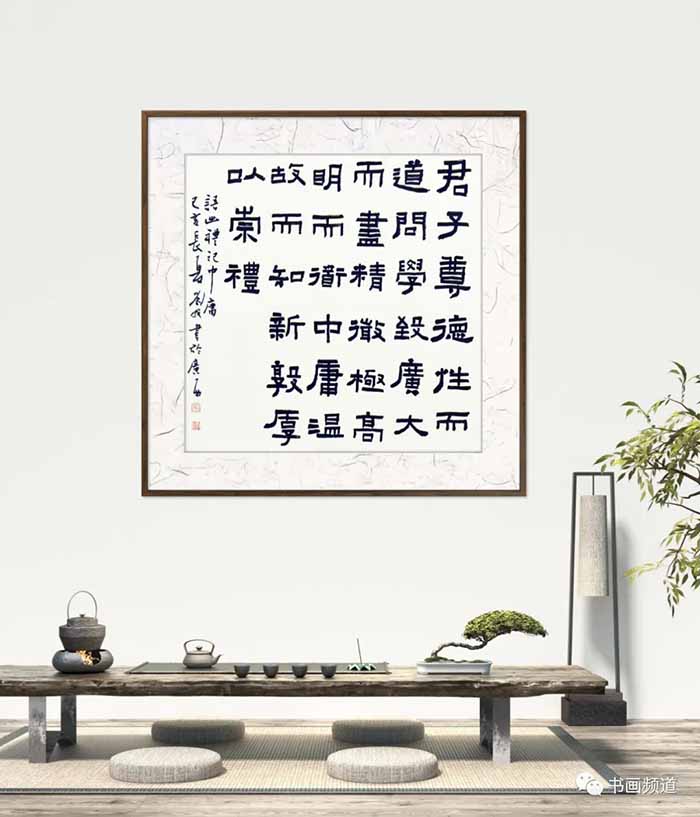 君子尊德性而
道問學致廣大
而盡精微極高
明而衜中庸溫
故而知新敦厚
以崇禮
語出禮記中庸
己亥長夏書於
书画频道